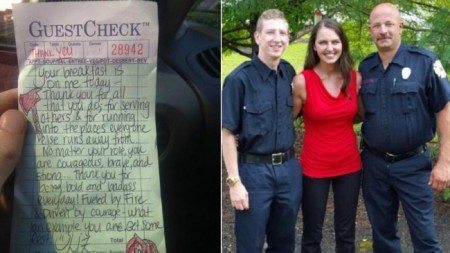 GUESTCHECK™
Thank You 28942
APPT-SOUP/SAL-ENTREE-VEG/POT-DESSERT-BEV
Your breakfast is
on me today -
Thank you for all
that you do; for serving
others & for running
into the places everyone
else runs away from.
No matter your role, you
are courageous, brave, and
strong... Thank you for
being bold and badass
everyday! Fueled by Fire
& Driven by courage - what
an example you are. Get some
Rest
Total